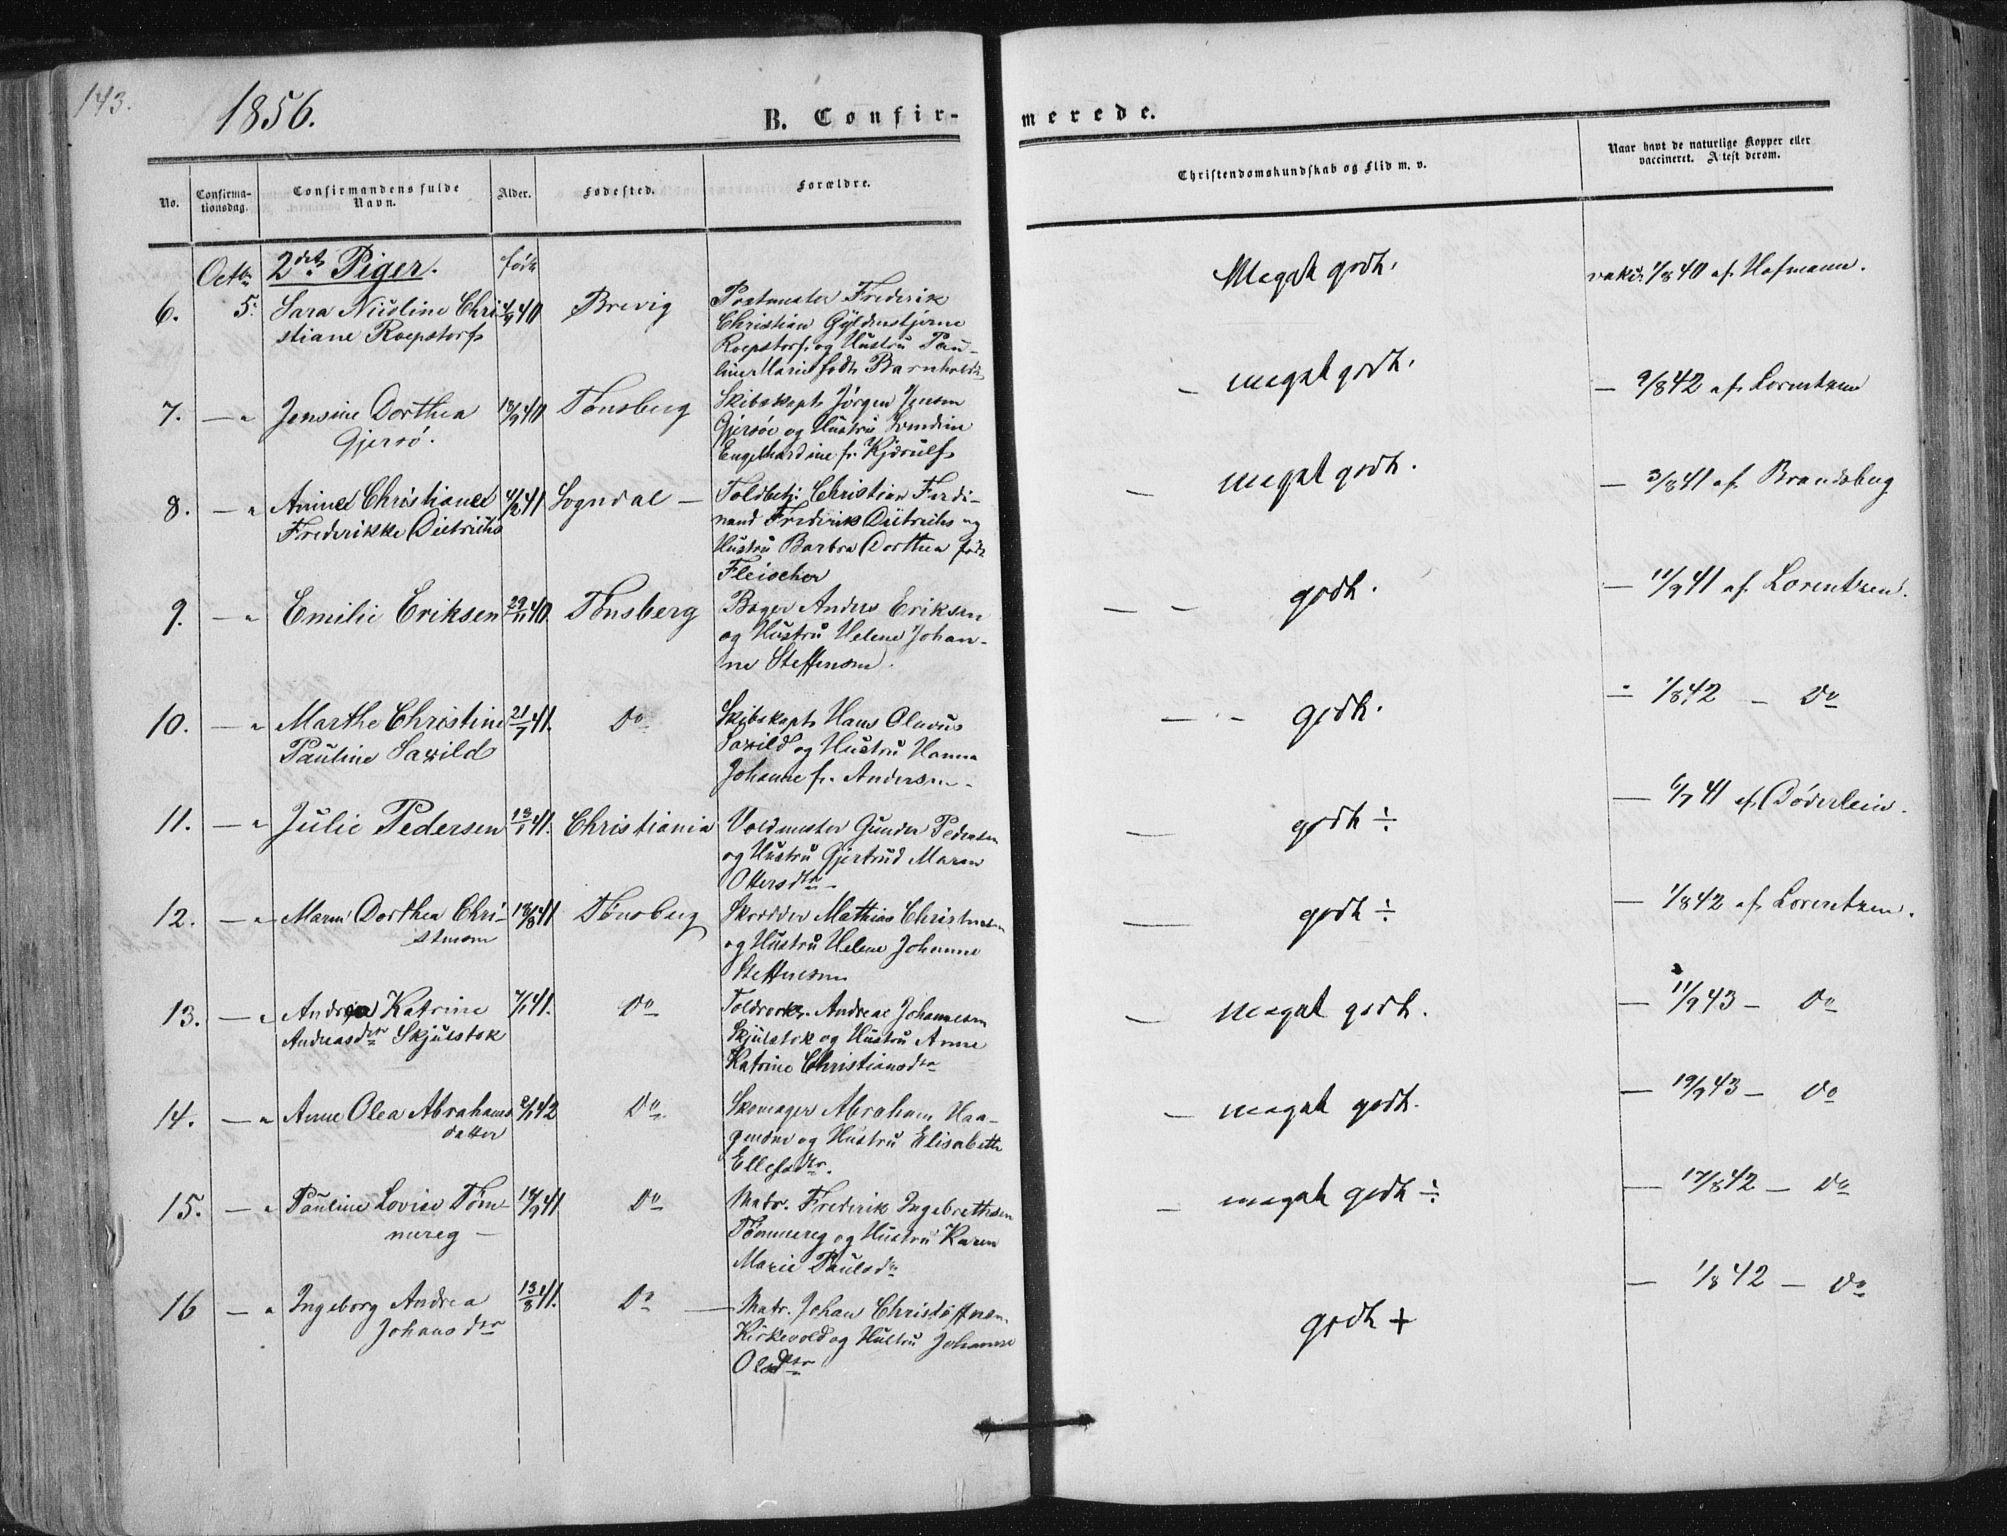 143.
1856.
B. Confir-
merede.
No.
Confirma-
tionsdag.
Confirmandens fulde
Navn.
Alder.
Fødested.
Forældre.
Christendomskundskab og Flid m. v.
Naar havt de naturlige Kopper eller
vaccineret. Attest derom.
Octbr 2det Piger. født
6. 5. Sara Nicoline Chri 4/9 40 Brevig Postmester Frederik Meget godt. vakc. 1/8 40 af Hofmann.
stiane Roepstorf Christian Gyldenstjerne
Roepstorf og Hustru Pau-
line Marie født Barnholdt
7. — " Jensine Dorthea 18/9 40 Tønsberg Skibskapt. Jørgen Jensen — meget godt. — 9/8 42 af Lorentzen
Gjersø. Gjersøe og Hustru
Engelhardine f.
8. — " Anne Christiane 4/2 41 Sogndal — Toldbetj. Christian Ferdi- — meget godt. — 3/8 41 af Brandsberg
Frederikke Dietrichs nand Frederik Dietrichs og
Hustru Barbra Dorthea født
Fleischer
9. — " Emilie Eriksen 29/11 40 Tønsberg Bager Anders Eriksen — — godt. — 11/9 41 af Lorentzen.
og Hustru Helene Johan-
ne Steffensen.
10. — " Marthe Christine 21/7 41. Do Skibskapt. Hans Olavus — - godt. — 1/8 42 — Do
Pauline Saxild Saxild og Hustru Hanna
Johanne f. Andersen.
11. — " Julie Pedersen 13/1 41. Christiania Voldmester Gunder Pedersen — godt ÷ — 6/7 41 af Døderlein.
og Hustru Gjertrud Maren
Ottersdtr
12. — " Maren Dorthea Chri- 18/8 41 Tønsberg Skrædder Mathias Christensen — godt ÷ — 1/8 42 af Lorentzen.
stensen og Hustru Helene Johanne
Steffensen
13. — " Andrea Katrine 7/1 41. Do Toldrork. Andreas Johannesen — meget godt. — 11/9 43 — Do
Andreasdtr Skjulstok Skjulstok og Hustru Anne
Katrine Christiansdtr
14. — " Anne Olea Abrahams 2/1 42 Do Skomager Abraham Haa- — meget godt. — 19/9 43 — Do
datter gensen og Hustru Elisabeth
Ellefsdtr.
15. — " Pauline Lovise Tøm- 18/9 41 Do Matr. Frederik Ingebrethsen — meget godt ÷ — 17/8 42 — Do
mereg — Tømmereg og Hustru Karen
Marie Paulsdtr
16 — " Ingeborg Andrea 13/8 41. Do — Matr. Johan Christoffersen godt + — 1/8 42 — Do
Johansdtr Kirkevold og Hustru Johanne
Olsdtr